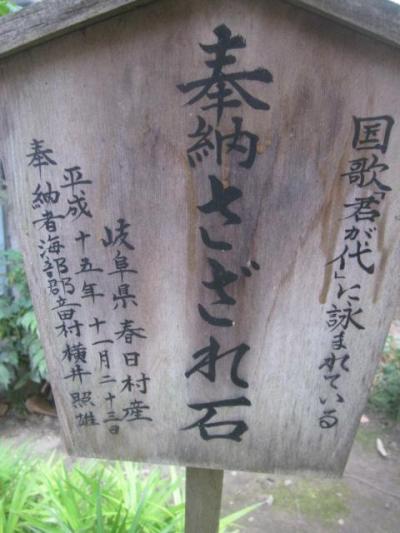 国歌「君が代」に詠まれている
奉納さざれ石
岐阜県春日村産
平成十五年十一月二十三日
奉納者海部郡立田村横井照雄